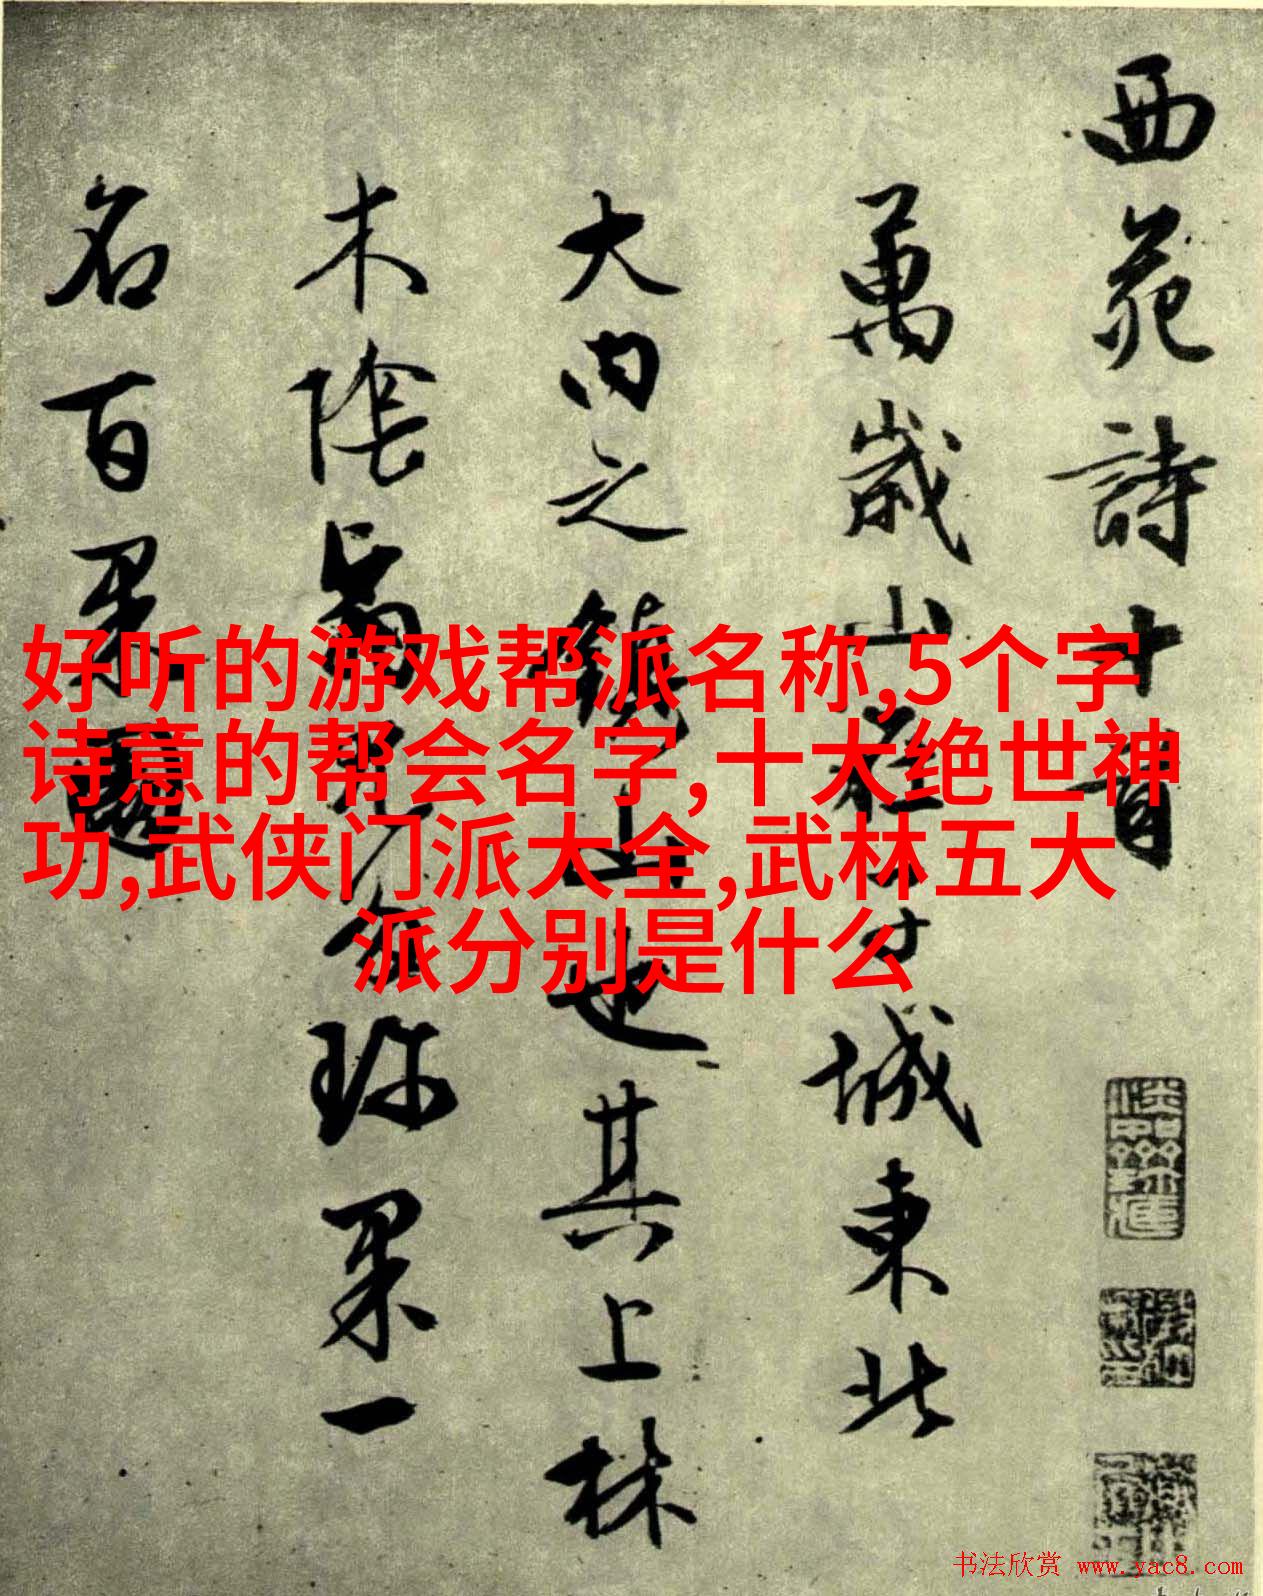 西苑詩十首
萬歲山在子城東北
大内之鎮山也其上林
木陰翳尤多珍果一
名百果園
好听的游戏帮派名称,5个字
诗意的帮会名字,十大绝世神
功,武侠门派大全,武林五大
派分别是什么
书法欣赏 www.yac8.com